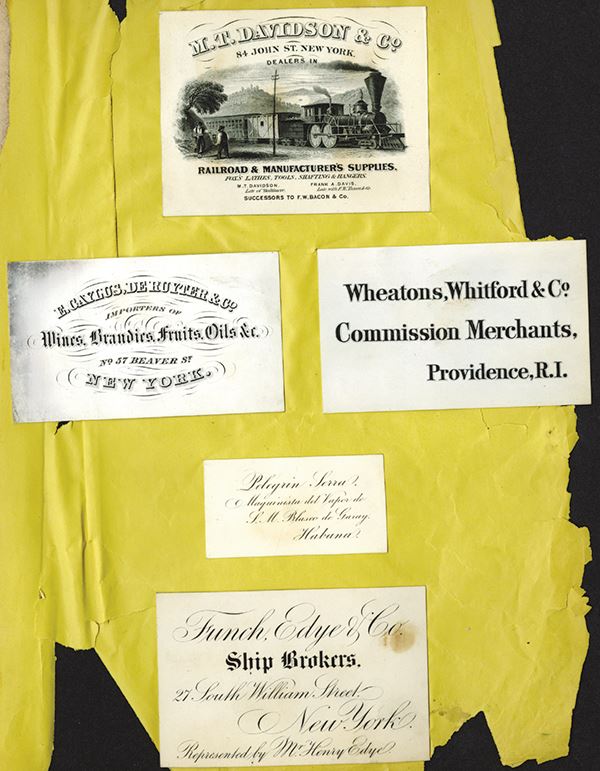 M.T. DAVIDSON & Co
84 JOHN ST. NEW YORK.
DEALERS IN
RAILROAD & MANUFACTURER'S SUPPLIES,
FOX'S LATHES, TOOLS, SHAFTING & HANGERS.
M.T. DAVIDSON.
Late of Baltimore.
FRANK A. DAVIS.
Late with F.W. Bacon & Co
SUCCESSORS TO F.W. BACON & Co.
E. CAYLUS, DE RUYTER & Co
IMPORTERS OF
Wines, Brandies, Fruits, Oils &c.
No 57 BEAVER St
NEW YORK.
Wheatons, Whitford & Co
Commission Merchants,
Providence, R.I.
Pelegrin Serra.
Maquinista del Vapor de
S. M. Blasco de Garay.
Habana.
Funch, Edye & Co.
Ship Brokers.
27 South William Street.
New York.
Represented by Mr Henry Edye